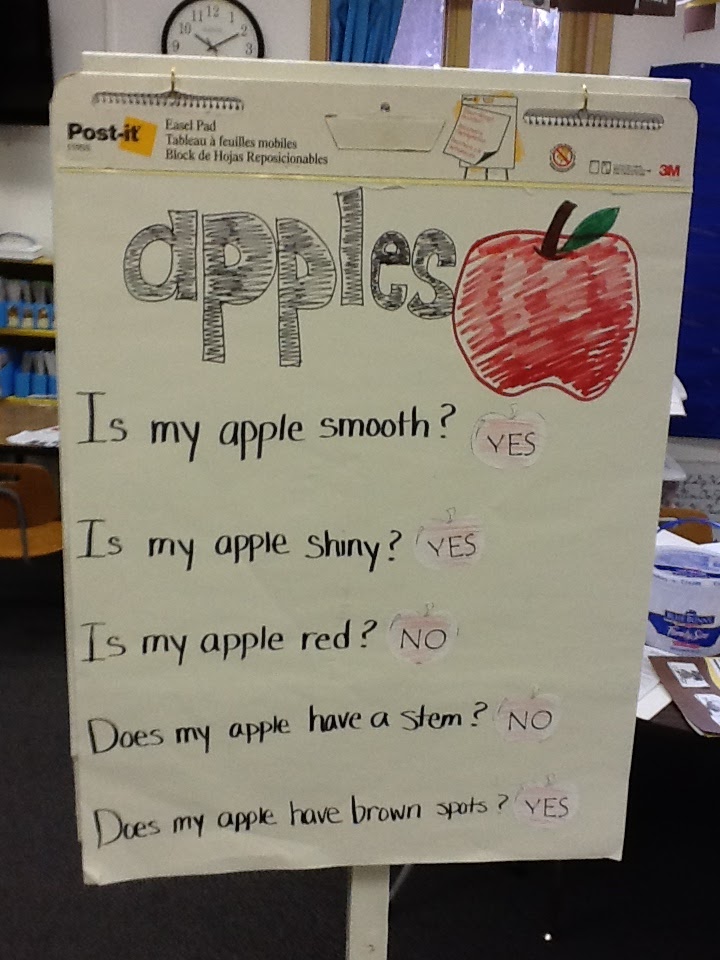 11 12 1
10 2
9 3
Post-it
Easel Pad
Tableau à feuilles mobiles
Block de Hojas Reposicionables
3M
apples
Is my apple smooth? YES
Is my apple shiny? YES
Is my apple red? NO
Does my apple have a stem? NO
Does my apple have brown spots? YES
Family Size